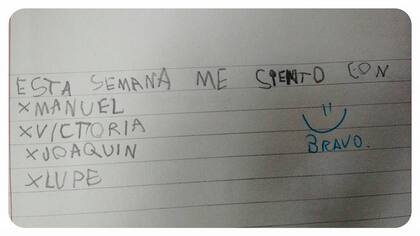 ESTA SEMANA ME SIENTO CON
×MANUEL
×VICTORIA
×JOAQUIN
×LUPE
BRAVO.